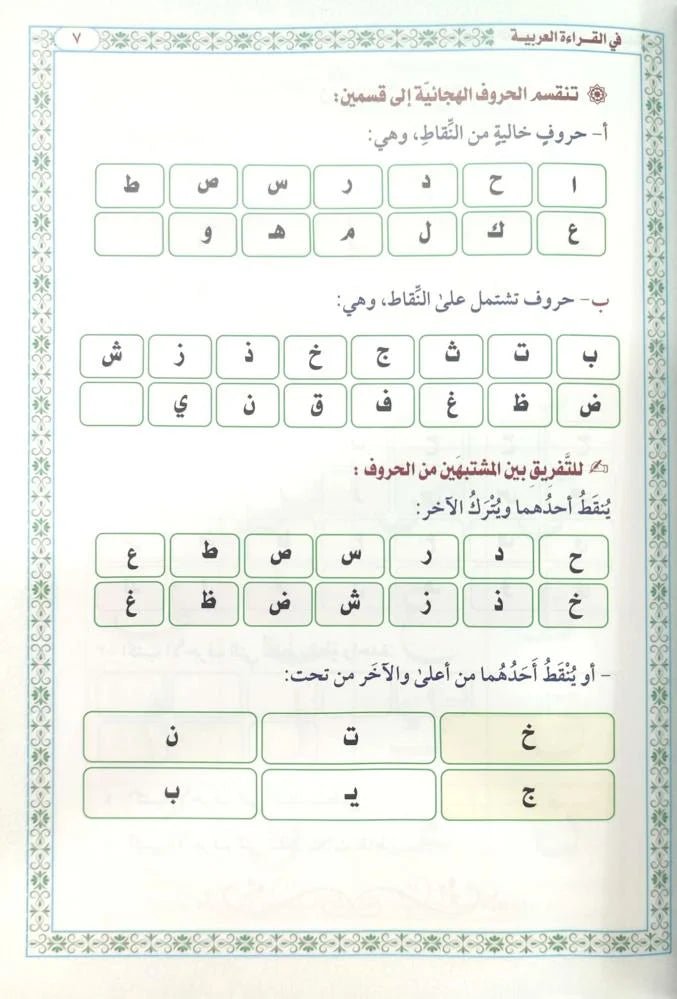 في القراءة العربية ٧
تنقسم الحروف الهجائيّة إلى قسمين:
أ- حروفٍ خاليةٍ من النِّقاطِ، وهي:
ا ح د ر س ص ط
ع ك ل م هـ و
ب- حروف تشتمل على النِّقاط، وهي:
ب ت ث ج خ ذ ز ش
ض ظ غ ف ق ن ي
للتَّفرِيقِ بين المشتبهَين من الحروف:
يُنقَطُ أحدُهما ويُتْرَكُ الآخر:
ح د ر س ص ط ع
خ ذ ز ش ض ظ غ
- أو يُنْقَطُ أَحَدُهُما من أعلىٰ والآخَر من تحت:
خ ت ن
ج يـ ب